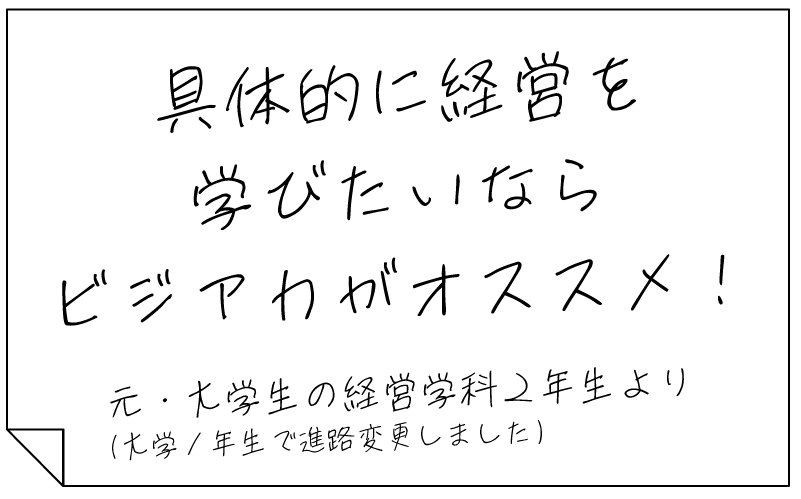 具体的に経営を
学びたいなら
ビジアカがオススメ!
元・大学生の経営学科2年生より
(大学1年生で進路変更しました)